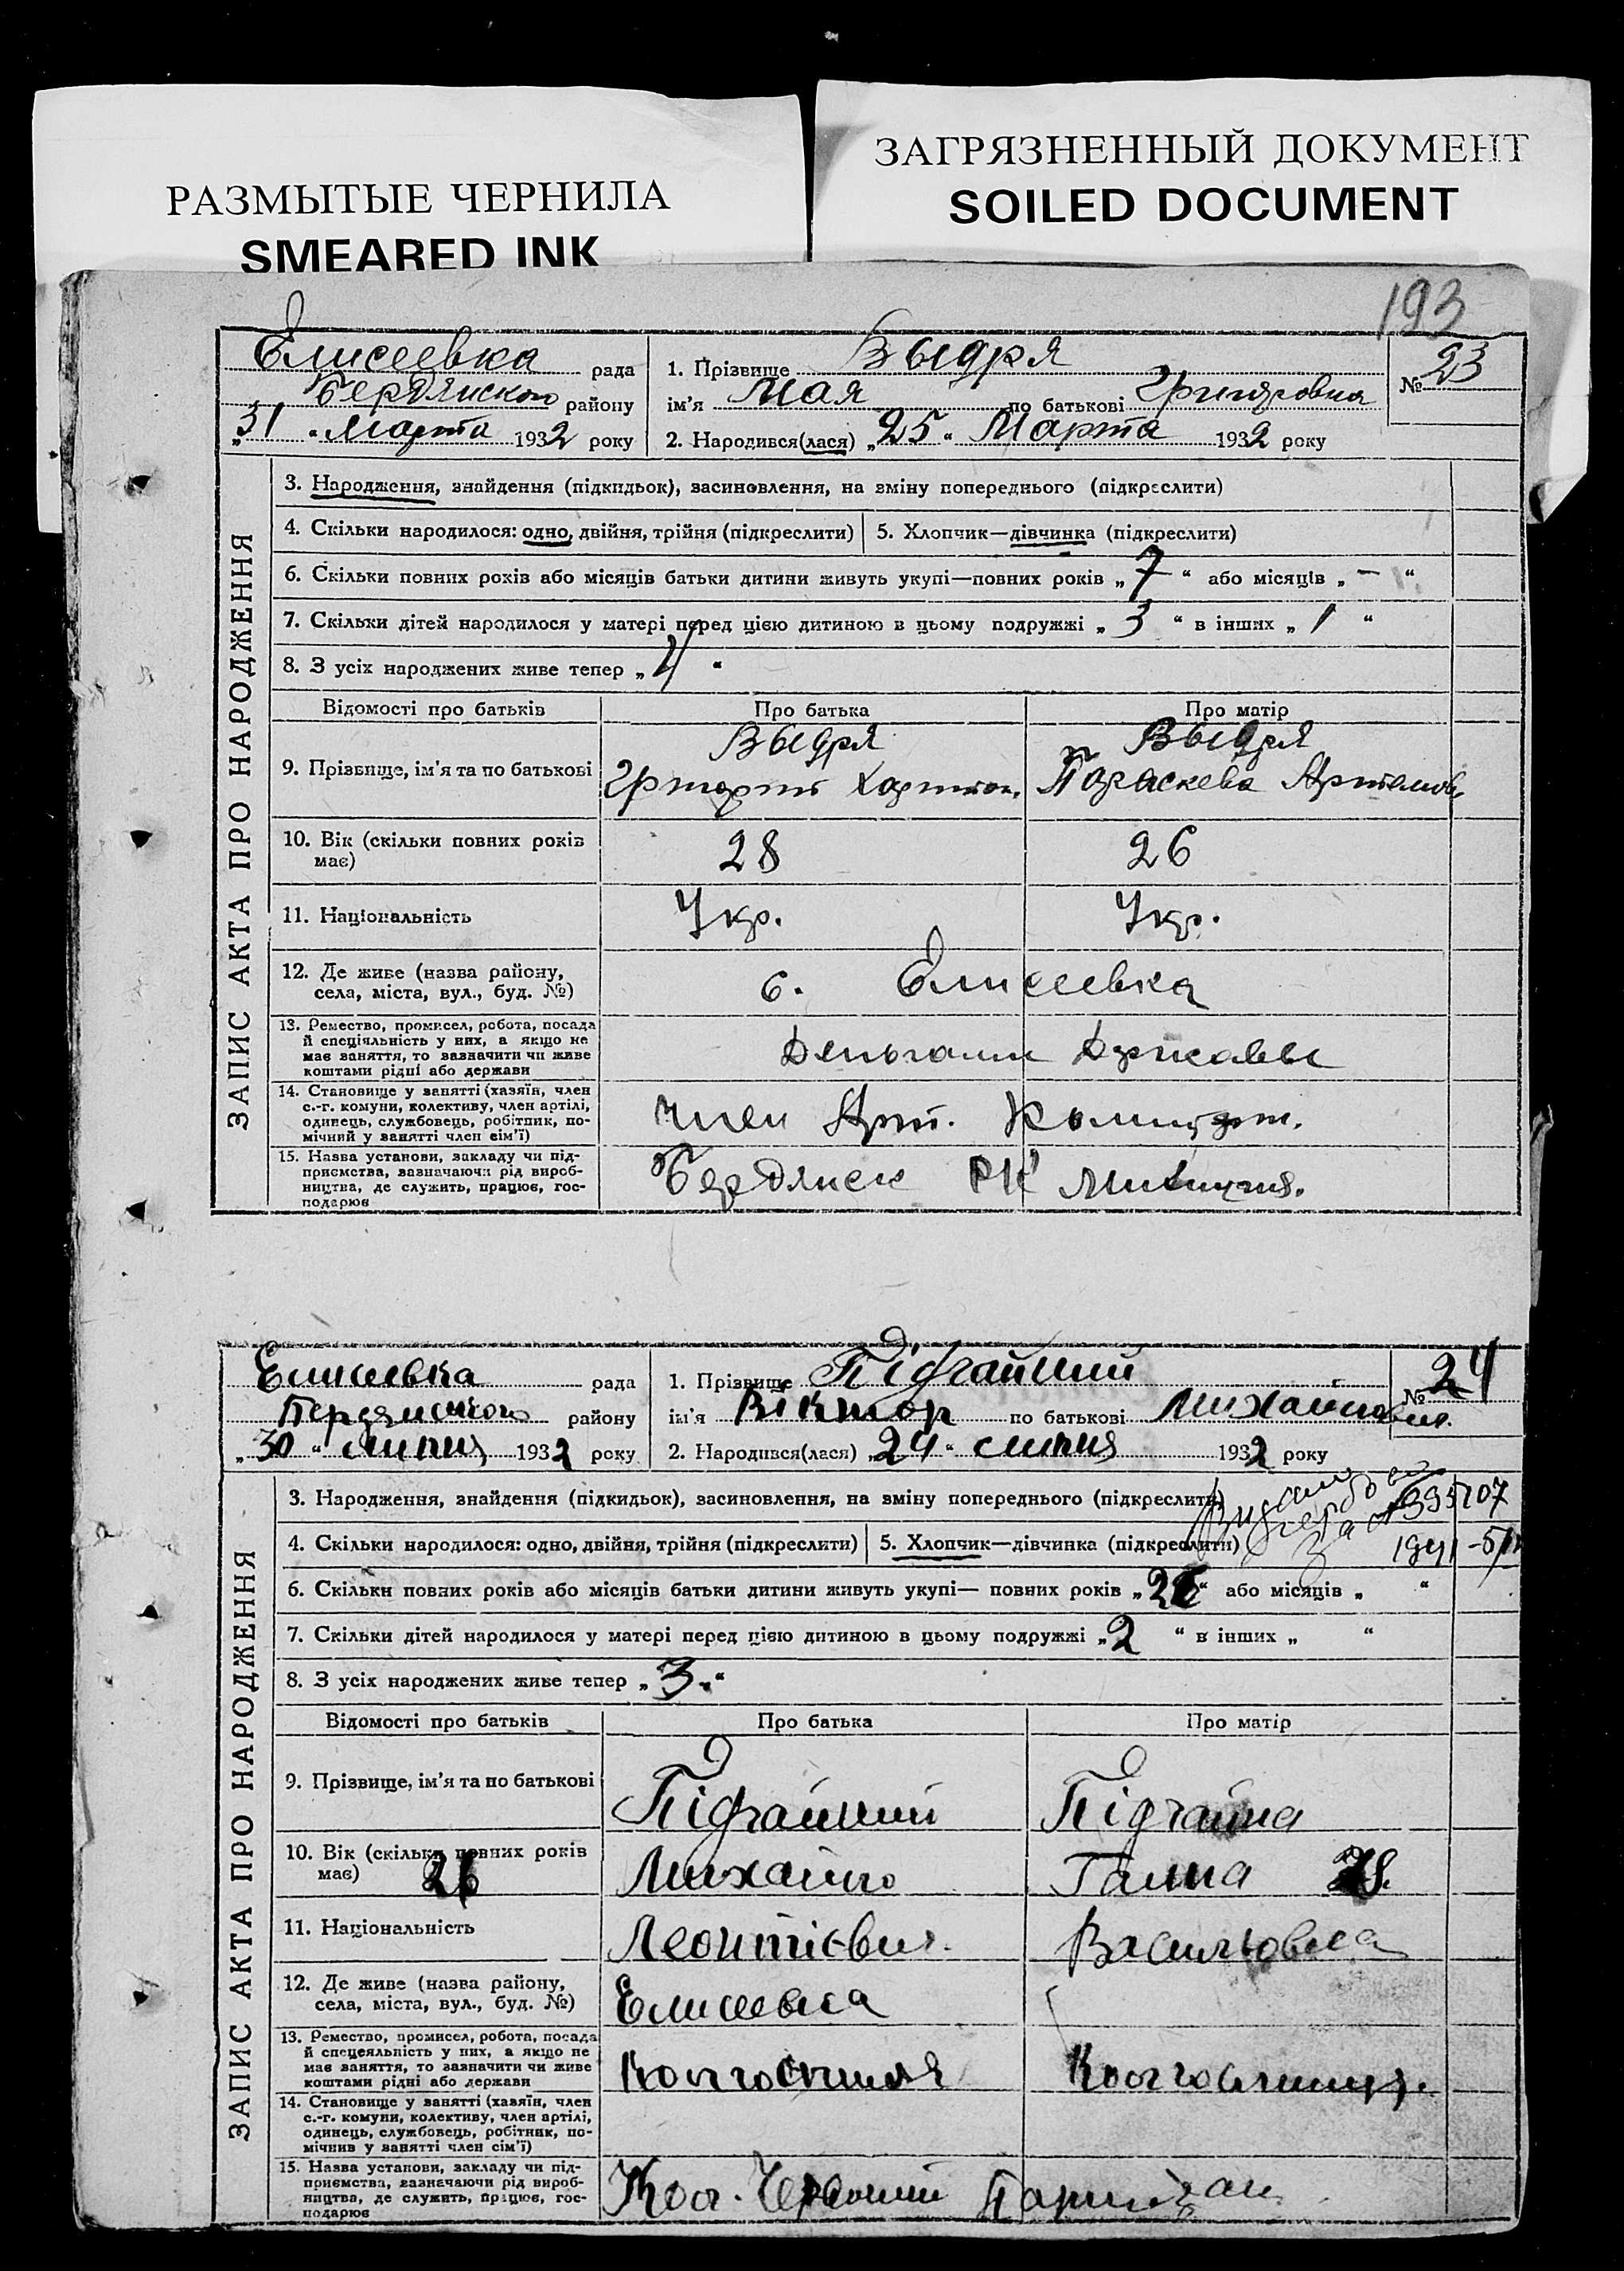 РАЗМЫТЫЕ ЧЕРНИЛА
SMEARED INK
ЗАГРЯЗНЕННЫЙ ДОКУМЕНТ
SOILED DOCUMENT
193
Елисеевка рада
Бердянского району
„31“ Марта 1932 року
1. Прізвище Выдря
ім'я Мая по батькові Григоровна
2. Народився(лася) „25“ Марта 1932 року
№ 23
ЗАПИС АКТА ПРО НАРОДЖЕННЯ
3. Народження, знайдення (підкидьок), засиновлення, на зміну попереднього (підкреслити)
4. Скільки народилося: одно, двійня, трійня (підкреслити) 5. Хлопчик—дівчинка (підкреслити)
6. Скільки повних років або місяців батьки дитини живуть укупі—повних років „7“ або місяців „—“
7. Скільки дітей народилося у матері перед цією дитиною в цьому подружжі „3“ в інших „1“
8. З усіх народжених живе тепер „4“
Відомості про батьків Про батька Про матір
9. Прізвище, ім'я та по батькові
Выдря Выдря
Григорий Харитон. Параскева Артемов.
10. Вік (скільки повних років має) 28 26
11. Національність Укр. Укр.
12. Де живе (назва району, села, міста, вул., буд. №) с. Елисеевка
13. Ремество, промисел, робота, посада
й спеціяльність у них, а якщо не
має заняття, то зазначити чи живе
коштами рідні або держави
Державы
14. Становище у занятті (хазяїн, член
с.-г. комуни, колективу, член артілі,
одинець, службовець, робітник, по-
мічний у занятті член сім'ї)
член Арт.
15. Назва установи, закладу чи під-
приємства, зазначаючи рід вироб-
ництва, де служить, працює, гос-
подарює
Бердянск РК Милиция.
Елисеевка рада
Бердянського району
„30“ липня 1932 року
1. Прізвище Підгайний
ім'я Віктор по батькові Михайлович.
2. Народився(лася) „24“ липня 1932 року
№ 24
ЗАПИС АКТА ПРО НАРОДЖЕННЯ
3. Народження, знайдення (підкидьок), засиновлення, на зміну попереднього (підкреслити)
за № 395207
4. Скільки народилося: одно, двійня, трійня (підкреслити) 5. Хлопчик—дівчинка (підкреслити)
1941
6. Скільки повних років або місяців батьки дитини живуть укупі— повних років „ “ або місяців „ “
7. Скільки дітей народилося у матері перед цією дитиною в цьому подружжі „2“ в інших „ “
8. З усіх народжених живе тепер „3.“
Відомості про батьків Про батька Про матір
9. Прізвище, ім'я та по батькові Підгайний Підгайна
10. Вік (скільки повних років має) 26 Михайло Галина 28.
11. Національність Леонтієвич. Васильовна
12. Де живе (назва району, села, міста, вул., буд. №) Елисеевка
13. Ремество, промисел, робота, посада
й спецеяльність у них, а якщо не
має заняття, то зазначити чи живе
коштами рідні або держави
Колгоспник Колгоспниця.
14. Становище у занятті (хазяїн, член
с.-г. комуни, колективу, член артілі,
одинець, службовець, робітник, по-
мічник у занятті член сім'ї)
15. Назва установи, закладу чи під-
приємства, зазначаючи рід вироб-
ництва, де служить, працює, гос-
подарює
Кол. Червоний Партизан